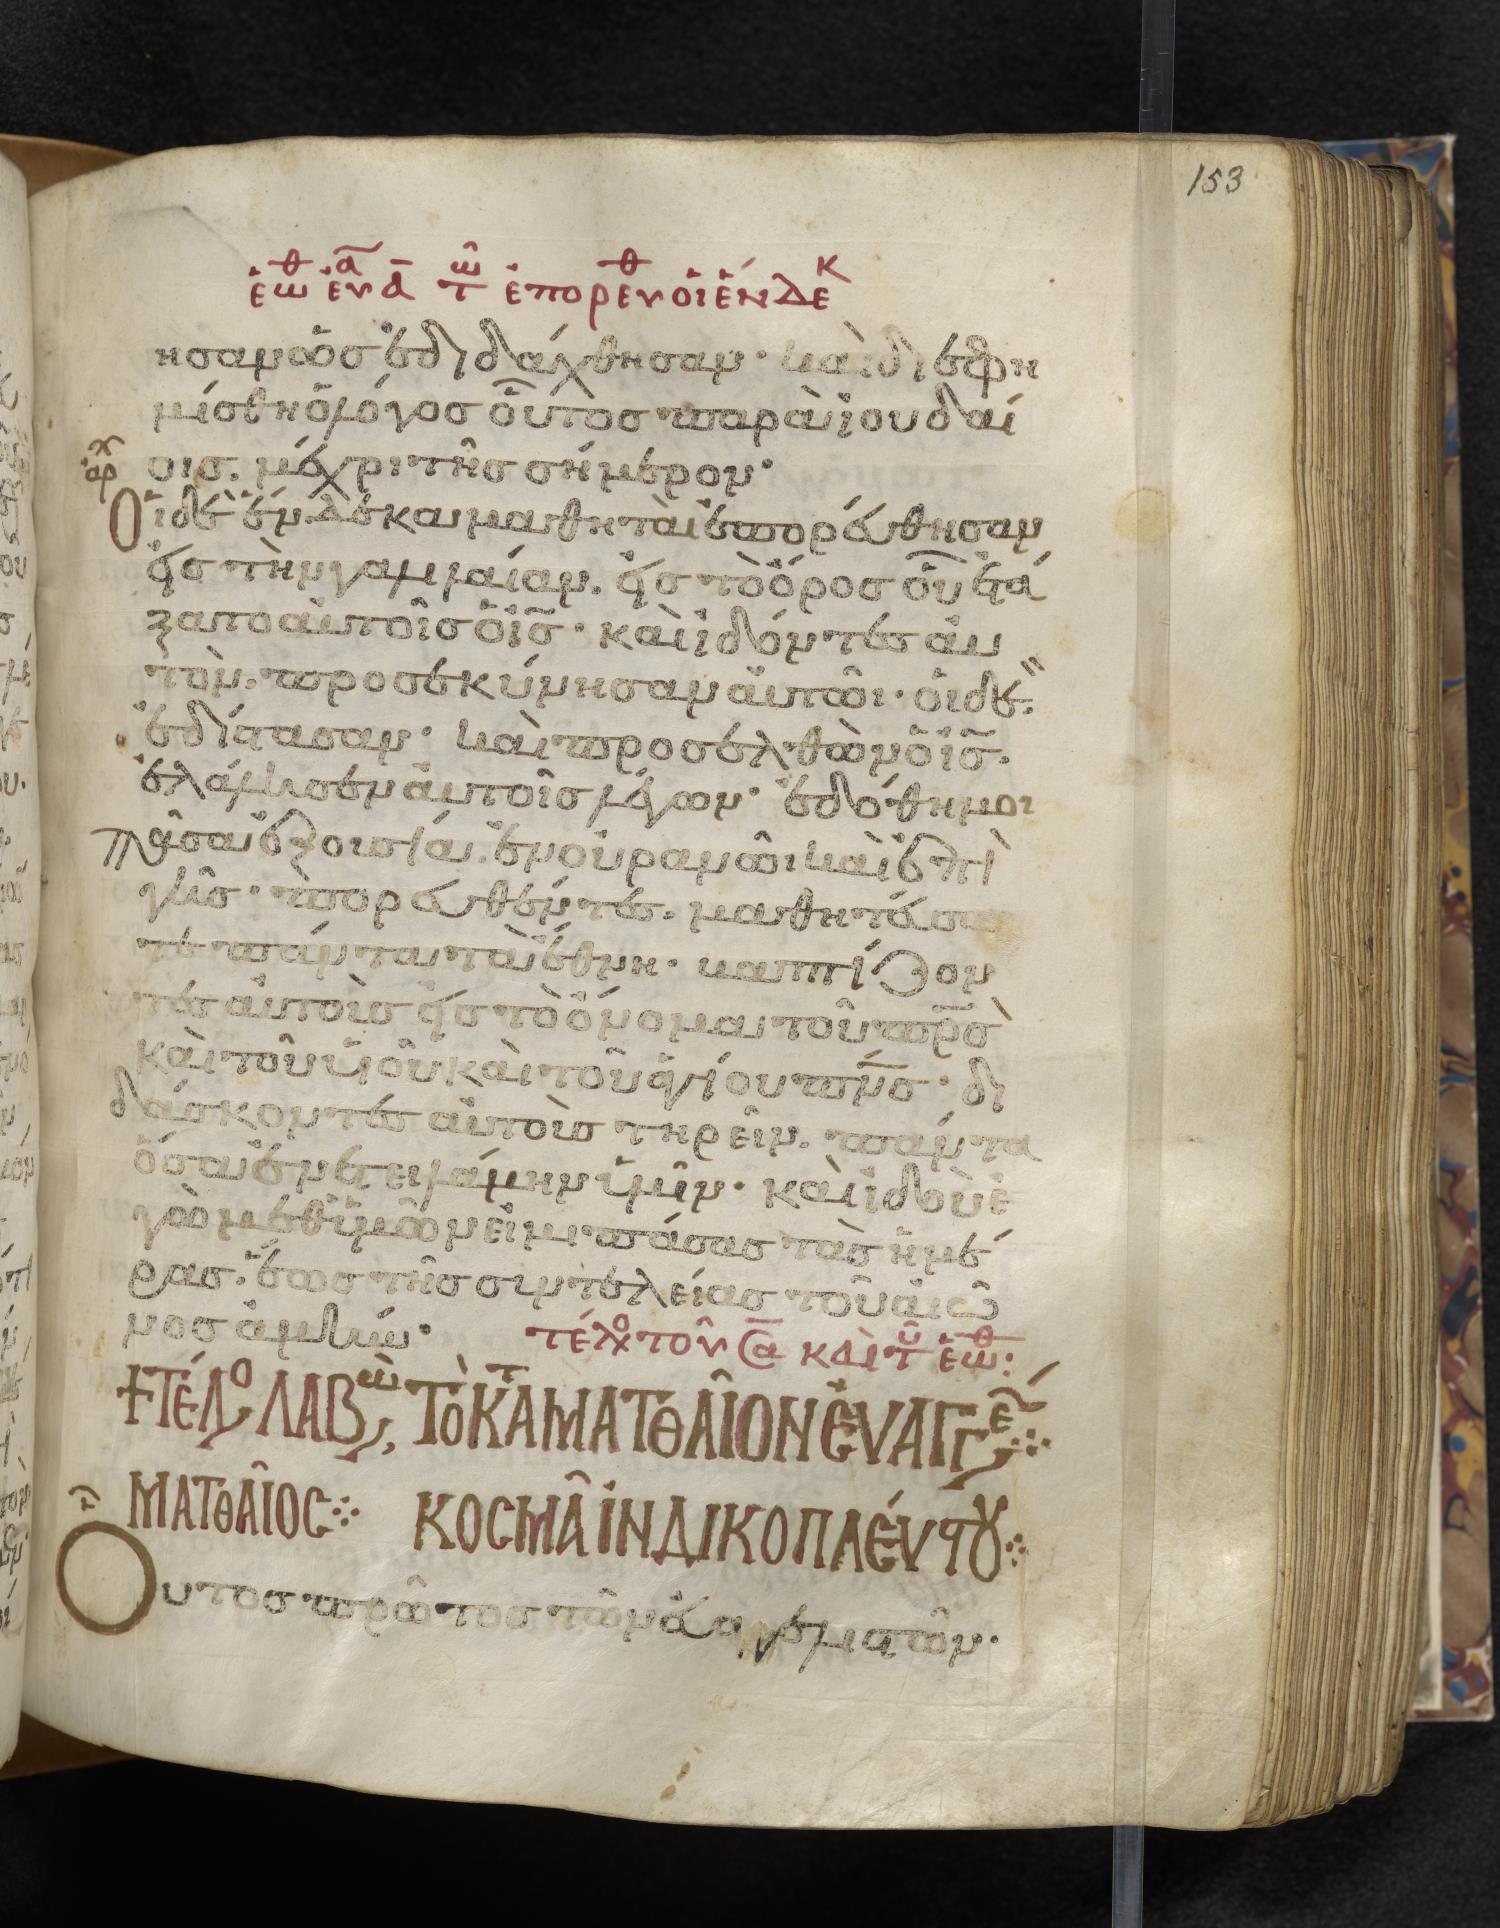 153
ἑωθ ἑνα τω ἐπορευθ οἱ ἕνδεκ
ησαν ὡς ἐδιδάχθησαν· καὶ διεφη
μίσθη ὁ λόγος οὗτος παρὰ ἰουδαί
αρχ
οις. μέχρι τῆς σήμερον·
Οἱ δὲ ἕνδεκα μαθηταὶ ἐπορεύθησαν
εἰς τὴν γαλιλαίαν. εἰς τὸ ὄρος οὗ ἐτά
ξατο αὐτοῖς ὁ ἰς· καὶ ἰδόντες αὐ
τὸν. προσεκύνησαν αὐτῶι· οἱ δὲ
ἐδίστασαν· καὶ προσελθὼν ὁ ἰς.
ἐλάλησεν αὐτοῖς λέγων· ἐδόθη μοι
πᾶσα ἐξουσία. ἐν οὐρανῶι καὶ ἐπὶ
γῆς· πορευθέντες. μαθητεύσα
τε πάντα τὰ ἔθνη· βαπτίζον
τες αὐτοὺς εἰς τὸ ὄνομα τοῦ πρσ
καὶ τοῦ υἱοῦ καὶ τοῦ ἁγίου πνσ· δι
δάσκοντες αὐτοὺς τηρεῖν. πάντα
ὅσα ἐνετειλάμην ὑμῖν· καὶ ἰδοὺ ἐ
γὼ μεθ ὑμῶν εἰμι πάσας τὰς ἡμέ
ρας. ἕως τῆς συντελείας τοῦ αἰῶ
νος ἀμήν·
τέλο τοῦ σα καὶ τοῦ ἑωθ:
+ ΤΕΛο ΛΑΒω, ΤΟ ΚΑΤ ΜΑΤΘΑῖΟΝ ΕΥΑΓΓε
ΜΑΤΘΑῖΟC ΚΟCΜᾶ ΙΝΔΙΚΟΠΛΕΥCΤΟΥ
Ουτος πρῶτος τῶν εὐαγγελιστῶν·